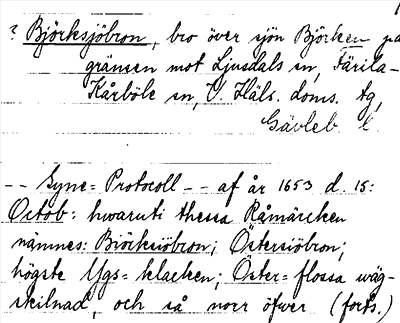 ? Björksjöbron, bro över sjön Björken på
gränsen mot Ljusdals sn, Färila-
Kårböle sn, V. Häls. doms. tg,
Gävleb. l.
-- Syne=Protocoll -- af år 1653 d. 15:
Octob: hwaruti thessa Råmärcken
nämnes: Biörksiöbron; Östersiöbron;
högste Ygs-klacken; Öster=flossa wäg-
skilnad, och så norr öfwer (forts.)